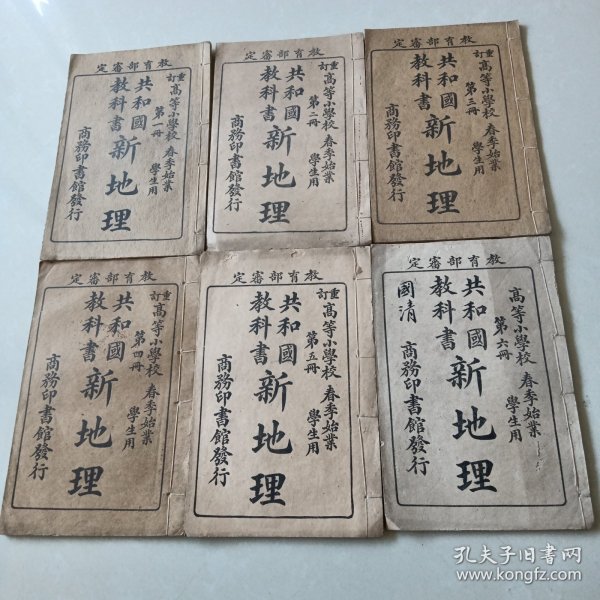 教育部審定
重訂
高等小學校 春季始業
第一冊 學生用
共和國
教科書
新地理
商務印書館發行
教育部審定
重訂
高等小學校 春季始業
第二冊 學生用
共和國
教科書
新地理
商務印書館發行
教育部審定
重訂
高等小學校 春季始業
第三冊 學生用
共和國
教科書
新地理
商務印書館發行
教育部審定
重訂
高等小學校 春季始業
第四冊 學生用
共和國
教科書
新地理
商務印書館發行
教育部審定
重訂
高等小學校 春季始業
第五冊 學生用
共和國
教科書
新地理
商務印書館發行
教育部審定
高等小學校 春季始業
第六冊 學生用
共和國
教科書
新地理
國清
商務印書館發行
孔夫子旧书网
www.kongfz.com